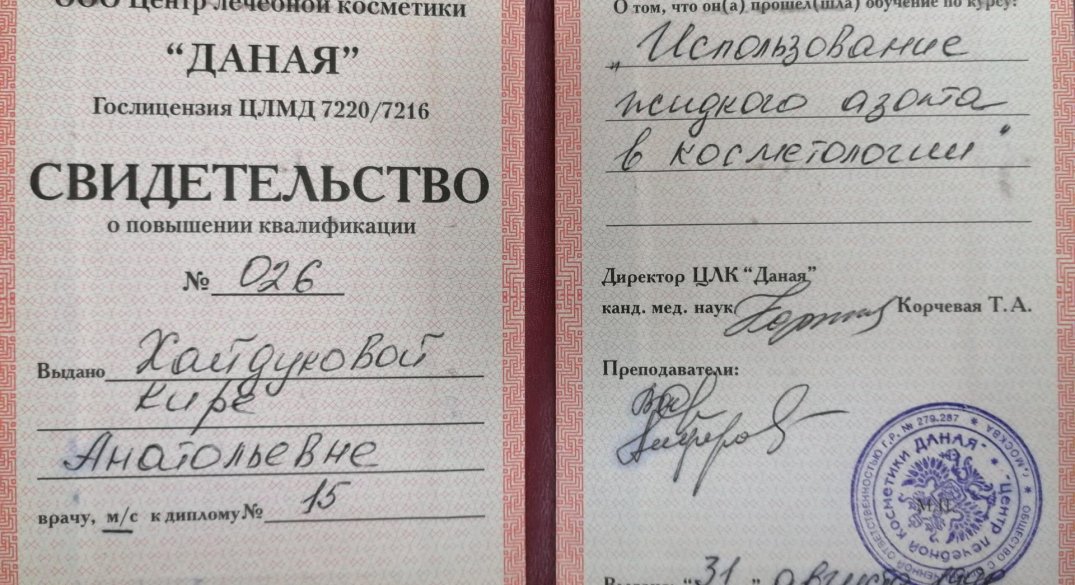 ООО Центр лечебной косметики
“ДАНАЯ”
Гослицензия ЦЛМД 7220/7216
СВИДЕТЕЛЬСТВО
о повышении квалификации
№ 026
Выдано Хайдуковой
Кире
Анатольевне
врачу, м/с к диплому № 15
О том, что он(а) прошел(шла) обучение по курсу:
„Использование
жидкого азота
в косметологии“
Директор ЦЛК “Даная”
канд. мед. наук Корчевая Т.А.
Преподаватели:
М.П.
ОБЩЕСТВО С ОГРАНИЧЕННОЙ ОТВЕТСТВЕННОСТЬЮ Г.Р. № 279.287 * г. МОСКВА *
"ЦЕНТР ЛЕЧЕБНОЙ КОСМЕТИКИ ДАНАЯ"
“31”